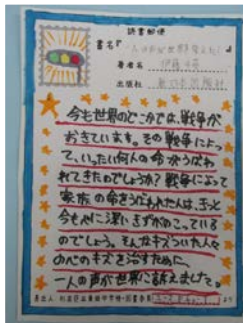 読書郵便
書名『
著者名 伊藤
出版社 出版社
今も世界のどこかでは、戦争が
おきています。その戦争によっ
て、いったい何人の命がうばわ
れてきたのでしょうか?戦争によって
家族の命をうばわれた人は、きっと
今も心に深いきずがのこっている
のでしょう。そんなキズついた人々
の心のキズを治すために、
一人の声が世界に訴えました。
差出人